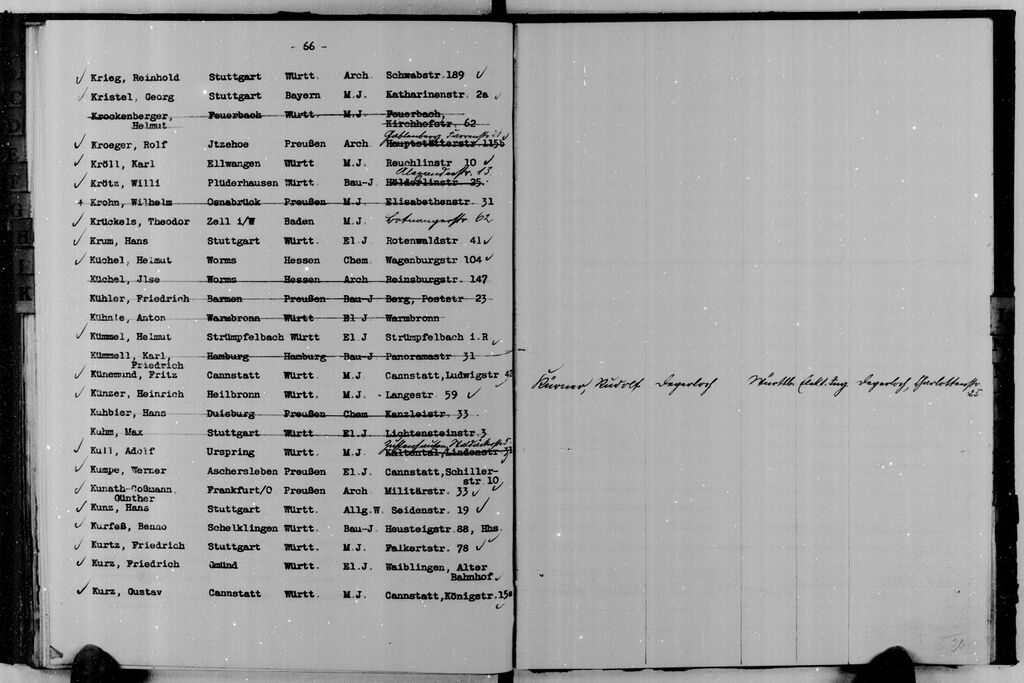 - 66 -
✓ Krieg, Reinhold Stuttgart Württ. Arch Schwabstr.189 ✓
✓ Kristel, Georg Stuttgart Bayern M.J. Katharinenstr. 2a ✓
Krockenberger, Feuerbach Württ. M.J Feuerbach,
Helmut Kirchhofstr. 62
Gablenberg
✓ Kroeger, Rolf Jtzehoe Preußen Arch Hauptstätterstr 115b
✓ Kröll, Karl Ellwangen Württ M.J. Reuchlinstr 10 ✓
Alexanderstr. 13
✓ Krötz, Willi Plüderhausen Württ Bau-J Hölderlinstr 25.
+ Krohn, Wilhelm Osnabrück Preußen M.J Elisabethenstr. 31
✓ Krückels, Theodor Zell i/W Baden M.J. Botnangerstr 62
✓ Krum, Hans Stuttgart Württ. El.J Rotenwaldstr 41 ✓
✓ Küchel, Helmut Worms Hessen Chem. Wagenburgstr 104 ✓
Küchel, Jlse Worms Hessen Arch Reinsburgstr. 147
Kühler, Friedrich Barmen Preußen Bau-J Berg, Poststr 23
Kühnle, Anton Warmbronn Württ El J Warmbronn
✓ Kümmel, Helmut Strümpfelbach Württ El.J Strümpfelbach i.R ✓
Kümmell, Karl, Hamburg Hamburg Bau-J Panoramastr 31
Friedrich
✓ Künemund, Fritz Cannstatt Württ. M.J. Cannstatt,Ludwigstr 42
Kürner, Rudolf Degerloch Württbg Elekt. Ing Degerloch, Charlottenstr
25
✓ Künzer, Heinrich Heilbronn Württ M.J. Langestr. 59 ✓
Kuhbier, Hans Duisburg Preußen Chem Kanzleistr. 33
Kuhm, Max Stuttgart Württ. El.J Lichtensteinstr.3
Zuffenhausen
✓ Kull, Adolf Urspring Württ. M.J. Kaltental,Lindenstr 31
✓ Kumpe, Werner Aschersleben Preußen El.J. Cannstatt,Schiller-
str 10 ✓
✓ Kunath-Coßmann Frankfurt/O Preußen Arch Militärstr. 33 ✓
Günther
✓ Kunz, Hans Stuttgart Württ. Allg.W. Seidenstr. 19 ✓
✓ Kurfeß, Benno Schelklingen Württ. Bau-J. Heusteigstr.88, Hhs
✓ Kurtz, Friedrich Stuttgart Württ. M.J. Falkertstr. 78 ✓
✓ Kurz, Friedrich Gmünd Württ. El.J. Waiblingen, Alter
Bahnhof ✓
✓ Kurz, Gustav Cannstatt Württ. M.J. Cannstatt,Königstr.15a